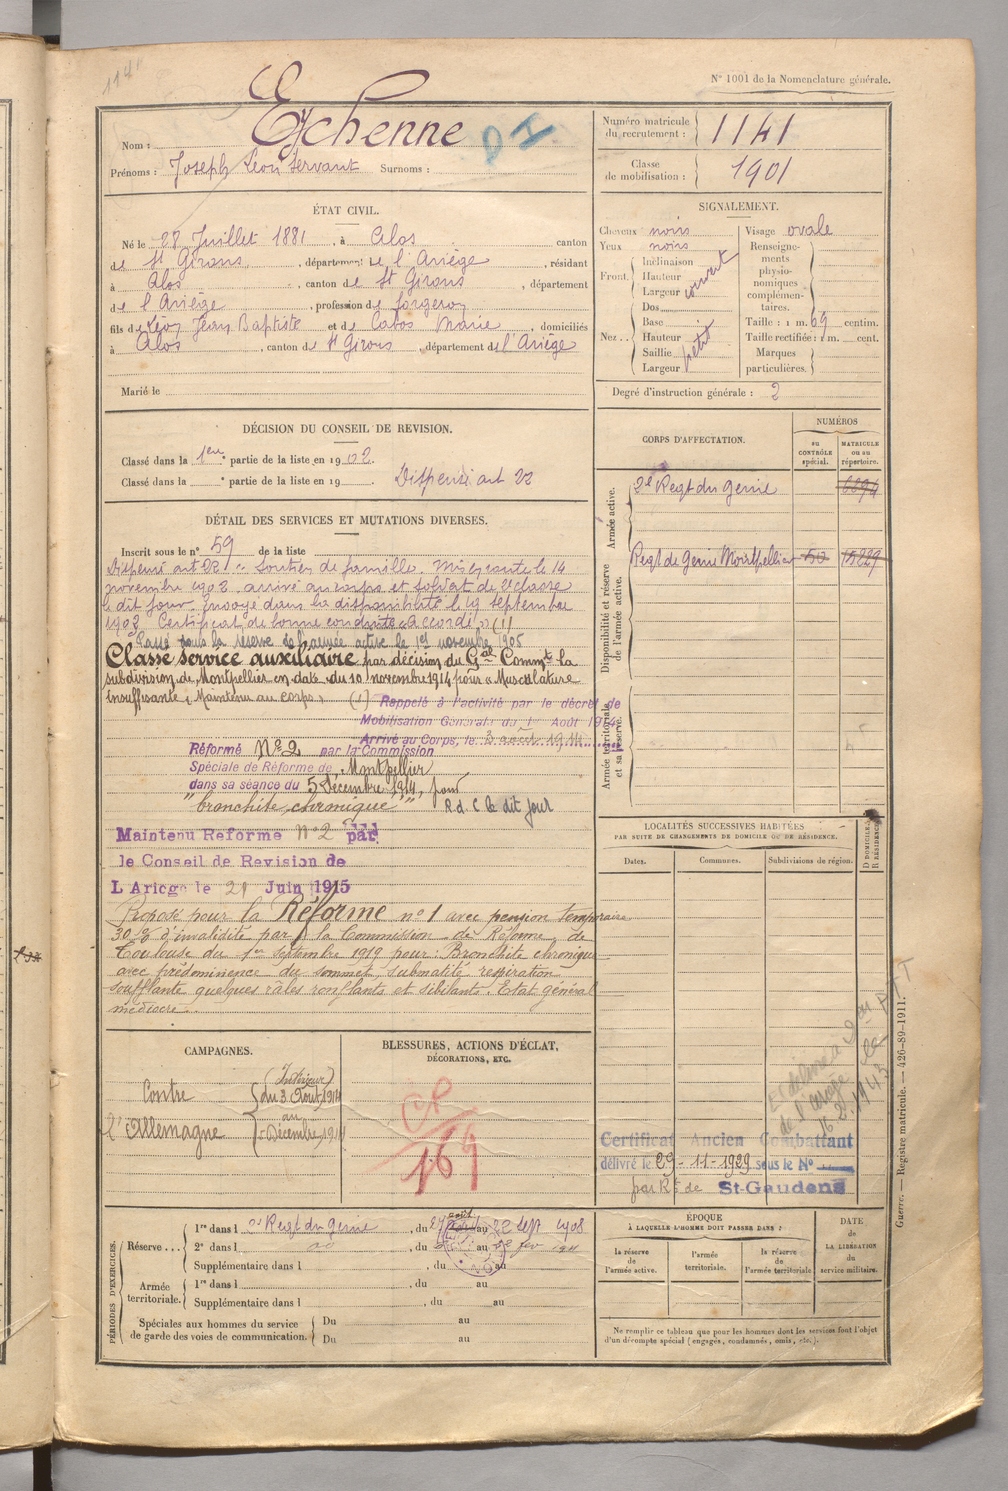 N° 1001 de la Nomenclature générale.
1141
Nom : Eychenne
Prénoms : Joseph Léon Servant Surnoms :
Numéro matricule du recrutement : 1141
Classe de mobilisation : 1901
ÉTAT CIVIL.
Né le 28 Juillet 1881, à Alos canton
de St Girons, département de l'Ariège, résidant
à Alos, canton de St Girons, département
de l'Ariège, profession de forgeron
fils de Léon Jean Baptiste et de Cabos Marie, domiciliés
à Alos, canton de St Girons, département de l'Ariège
Marié le
SIGNALEMENT.
Cheveux noirs
Yeux noirs
Front. Inclinaison
Hauteur
Largeur couvert
Nez. Dos
Base
Hauteur
Saillie petit
Largeur
Visage ovale
Renseignements physionomiques complémentaires.
Taille : 1 m. 69 centim.
Taille rectifiée : 1 m. cent.
Marques particulières.
Degré d'instruction générale : 2
DÉCISION DU CONSEIL DE REVISION.
Classé dans la 1ère partie de la liste en 1902.
Classé dans la partie de la liste en 19 . Dispensé art 22
CORPS D'AFFECTATION.
NUMÉROS
au CONTRÔLE spécial.
MATRICULE ou au répertoire.
Armée active.
2e Regt du Génie
Disponibilité et réserve de l'armée active.
Regt de Génie Montpellier 50 15229
Armée territoriale et sa réserve.
DÉTAIL DES SERVICES ET MUTATIONS DIVERSES.
Inscrit sous le n° 59 de la liste
Dispensé art 22. Soutien de famille. Mis en route le 14
novembre 1902, arrivé au corps et soldat de 2e classe
le dit jour. Envoyé dans la disponibilité le 19 septembre
1903 Certificat de bonne conduite accordé (1)
Passé dans la réserve de l'armée active le 1er novembre 1905
Classé service auxiliaire par décision du Gal Commt la
subdivision de Montpellier en date du 10 novembre 1914 pour « Musculature
insuffisante » Maintenu au corps. (1) Rappelé à l'activité par le décret de
Mobilisation Générale du 1er Août 1914
Arrivé au Corps, le 3 août 1914
Réformé N° 2 par la Commission
Spéciale de Réforme de Montpellier
dans sa séance du 5 Décembre 1914, pour
"bronchite chronique" R.d.C le dit jour
Maintenu Réformé n° 2 par
le Conseil de Revision de
L'Ariege le 21 Juin 1915
Proposé pour la Réforme n° 1 avec pension temporaire
30 % d'invalidité par la Commission de Réforme de
Toulouse du 1er septembre 1919 pour : Bronchite chronique
avec prédominence du sommet, submatité, respiration
soufflante quelques râles ronflants et sibilants. Etat général
médiocre.
LOCALITÉS SUCCESSIVES HABITÉES
PAR SUITE DE CHANGEMENTS DE DOMICILE OU DE RÉSIDENCE.
Dates.
Communes.
Subdivisions de région.
D DOMICILE.
R RÉSIDENCE.
CAMPAGNES.
Contre l'Allemagne
(Intérieur)
du 3 Août 1914
au
5 Décembre 1914
BLESSURES, ACTIONS D'ÉCLAT,
DÉCORATIONS, ETC.
16 2.1943
Certificat Ancien Combattant
délivré le 29-11-1929 sous le N°
par R.t de St-Gaudens
PÉRIODES D'EXERCICES.
Réserve... 1re dans l 2e Regt du génie, du 27 août au 22 Sept 1908
2e dans l , du au fev 1911
Supplémentaire dans l , du au
Armée territoriale. 1re dans l , du au
Supplémentaire dans l , du au
Spéciales aux hommes du service de garde des voies de communication. Du au
Du au
ÉPOQUE
À LAQUELLE L'HOMME DOIT PASSER DANS :
la réserve de l'armée active.
l'armée territoriale.
la réserve de l'armée territoriale
DATE de LA LIBÉRATION du service militaire.
Ne remplir ce tableau que pour les hommes dont les services font l'objet
d'un décompte spécial (engagés, condamnés, omis, etc.).
Guerre. — Registre matricule. — 426-89-1911.